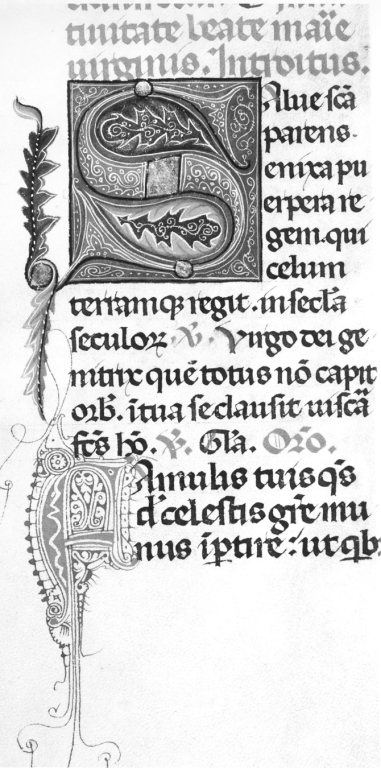 tiuitate beate marie
uirginis. Introitus.
Salue scā
parens
enixa pu
erpera re
gem. qui
celum
terramqꝫ regit. in secl'a
seculoꝝ. V. Virgo dei ge
nitrix quē totus nō capit
orb̄. ī tua se clausit uiscā
fcs hō. V. Gl'a. Orō.
Famulis tuis qs
dꝰ celestis grē mu
nus īptire: ut qb: